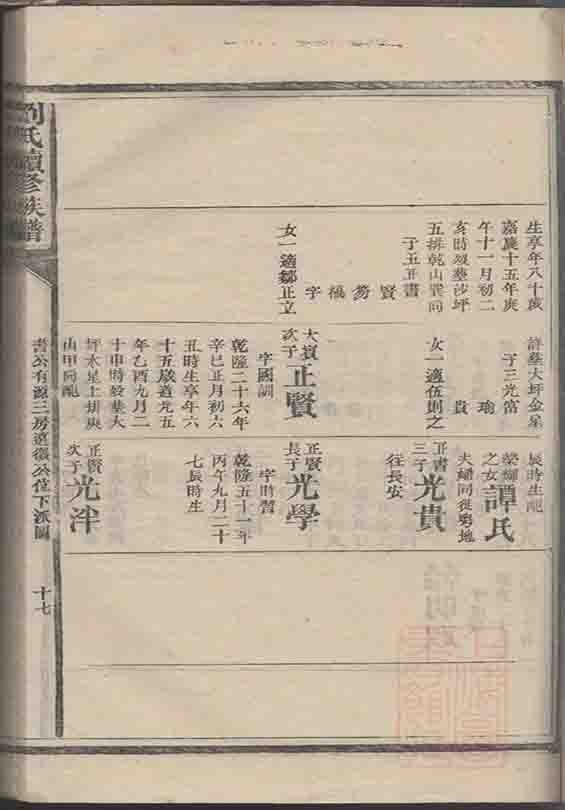 生享年八十歲
嘉慶十五年庚
午十一月初二
亥時歿葬沙坪
五排乾山巽向
子五正書
賢
芴
福
字
女一適鄒正立
詳葬大坪金星
子三光富
瑜
貴
女一適伍則之
大賓次子正賢
字國訓
乾隆二十六年
辛巳正月初六
丑時生享年六
十五歲道光五
年乙酉九月二
十申時歿葬大
坪水星上排庚
山甲向配
辰時生配
榮輝之女譚氏
夫婦同從別地
正書三子光貴
往長安
正賢長子光學
字時習
乾隆五十一年
丙午九月二十
七辰時生
正賢次子光泮
劉氏續修族譜
書公有源三房遠徵公位下派圖
十七